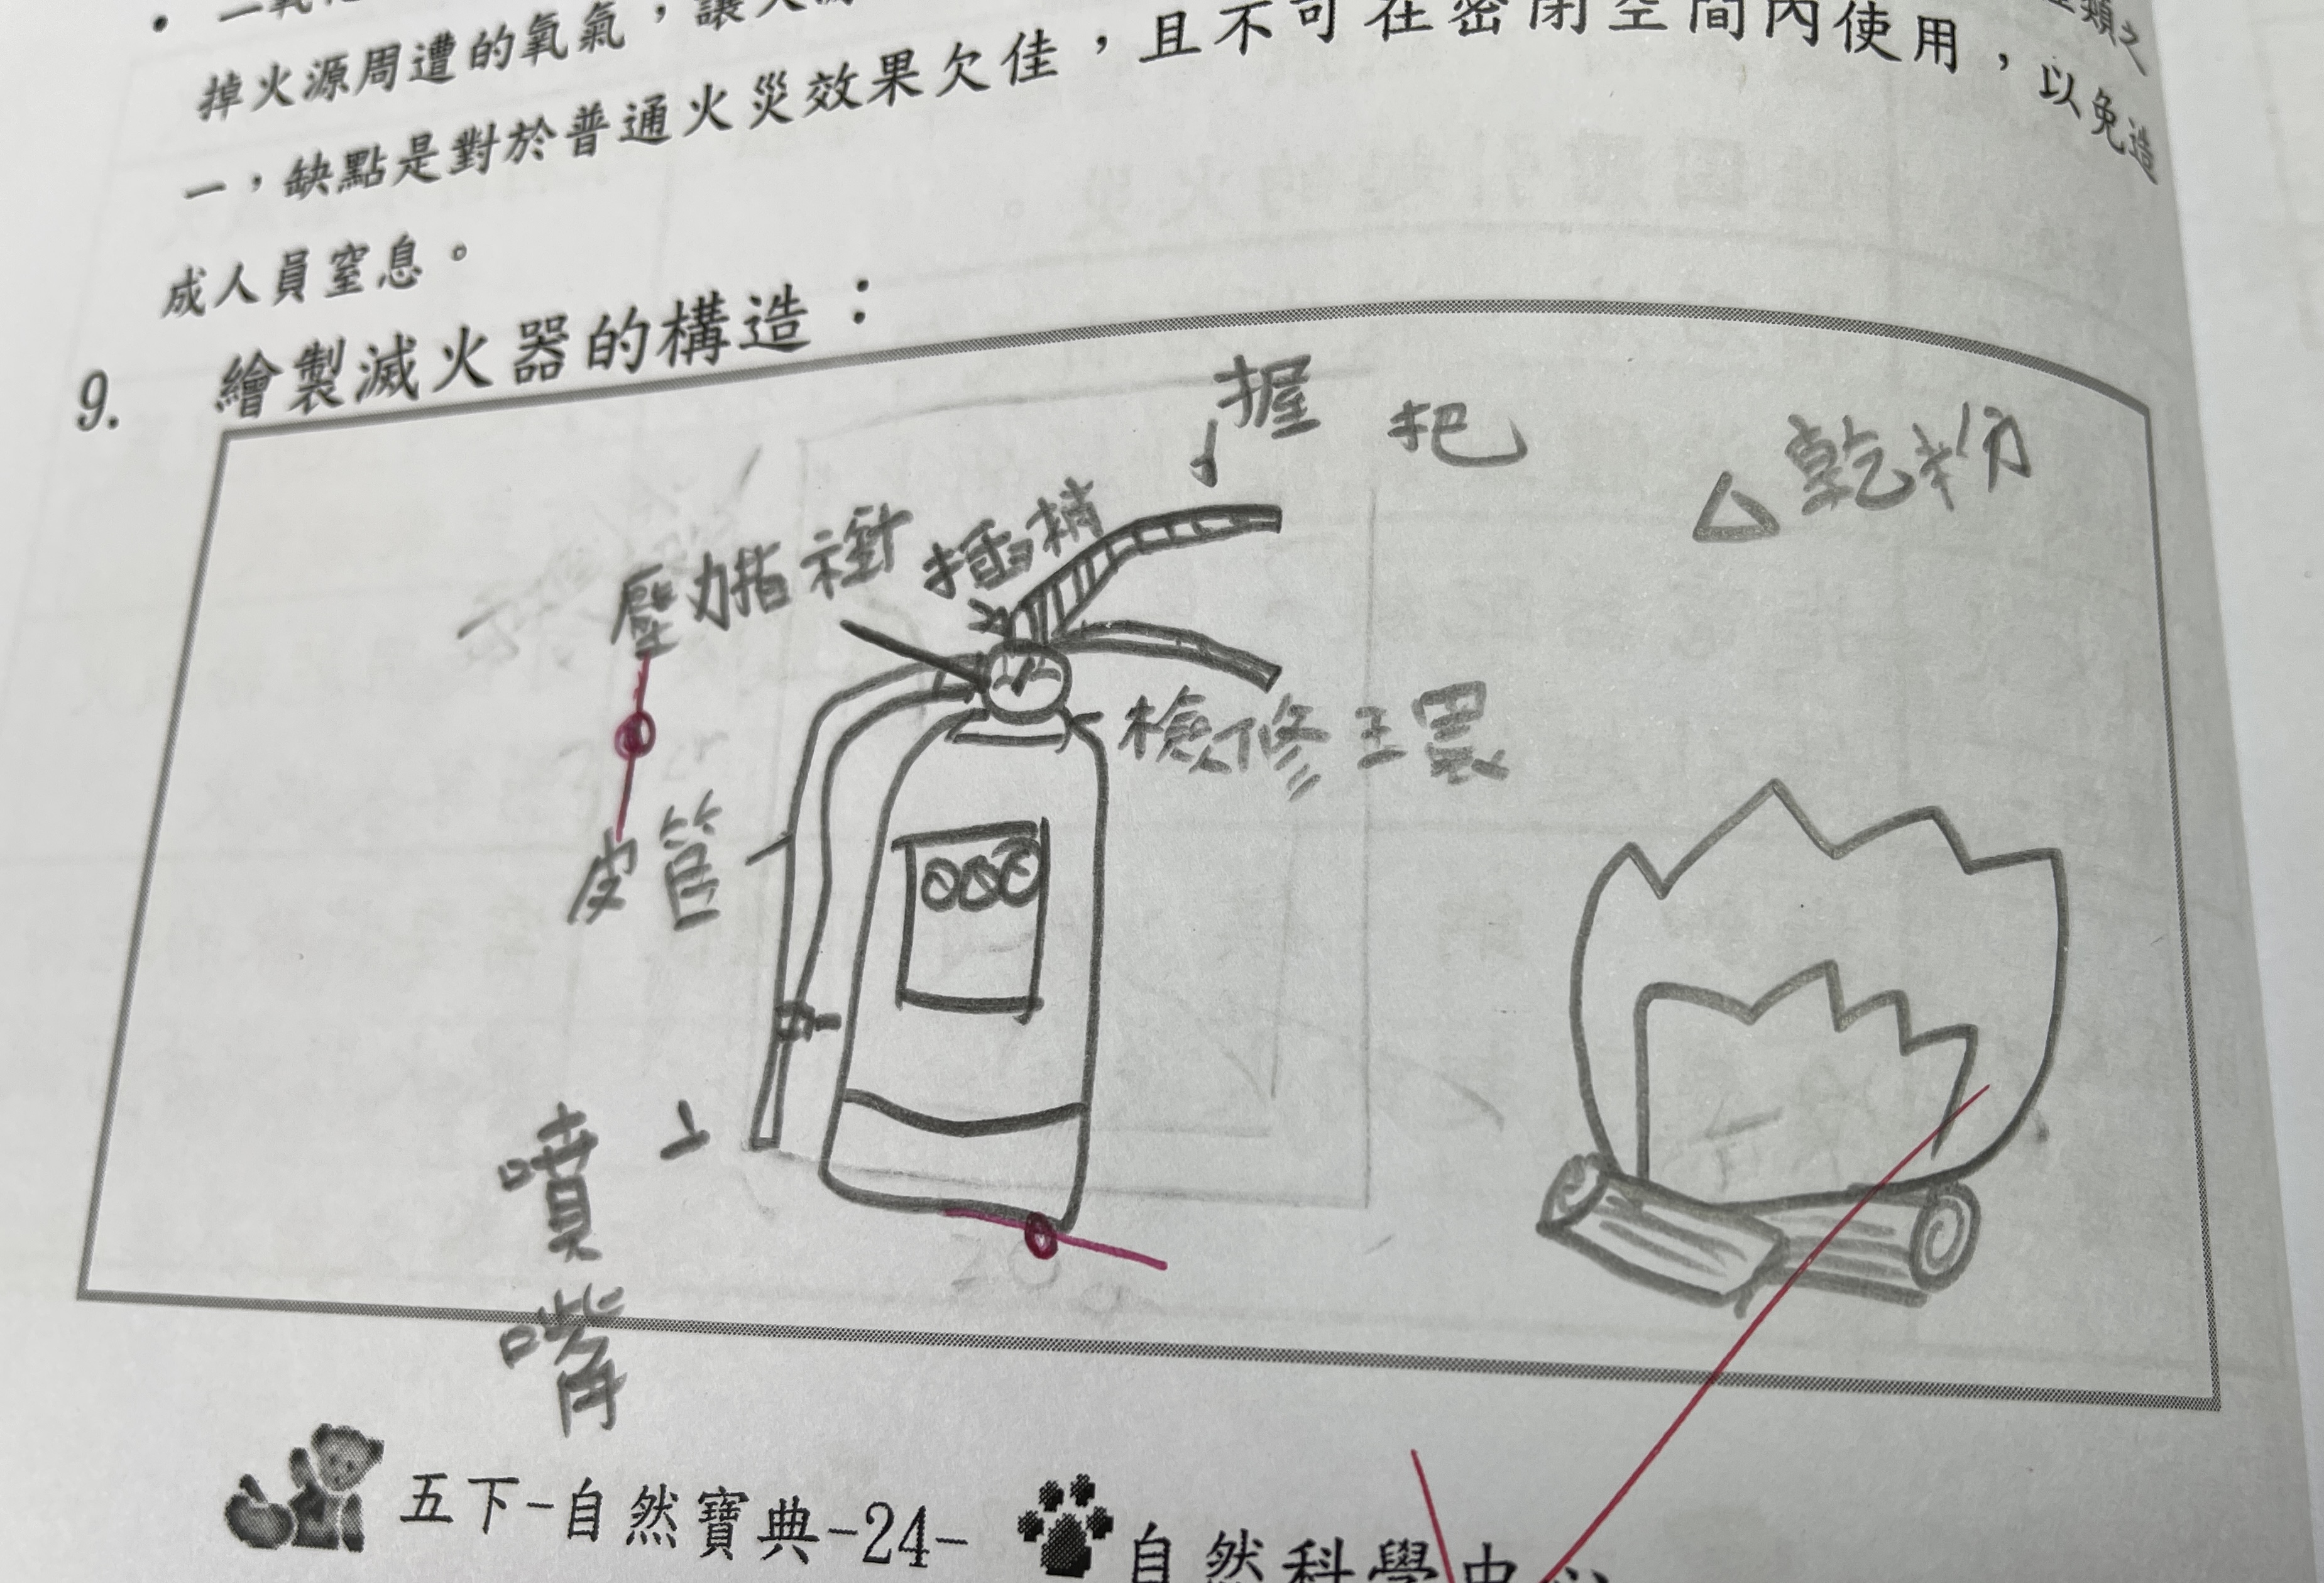 掉火源周遭的氧氣，讓火
一，缺點是對於普通火災效果欠佳，且不可在密閉空間內使用，以免造
成人員窒息。
9. 繪製滅火器的構造：
握把
△乾粉
壓力指示
插梢
檢修環
皮管
噴嘴
五下-自然寶典-24-
自然科學中心